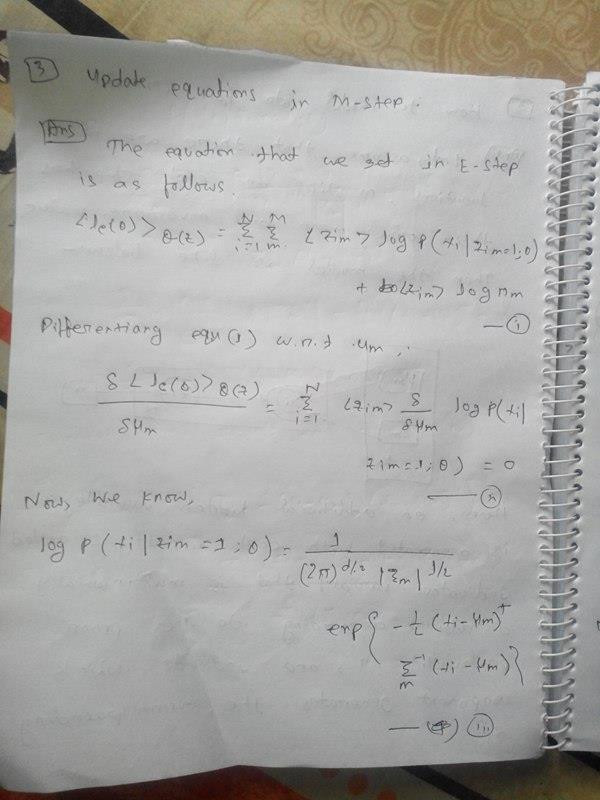 3 Update equations in M-step.
Ans The equation that we get in E-step
is as follows.
<lc(θ)>Q(z) = Σ_{i=1}^{N} Σ_{m}^{M} <zim> log P(xi | zim=1; θ)
+ <zim> log πm
— (i)
Differentiang equ (1) w.r.t μm,
δ <lc(θ)>Q(z) / δμm = Σ_{i=1}^{N} <zim> δ/δμm log P(xi |
zim=1; θ) = 0
— (ii)
Now, we know,
log P(xi | zim=1; θ) = 1 / (2π)^{d/2} |Σm|^{1/2}
exp { -1/2 (xi-μm)^T
Σ_m^{-1} (xi-μm) }
— (iii)